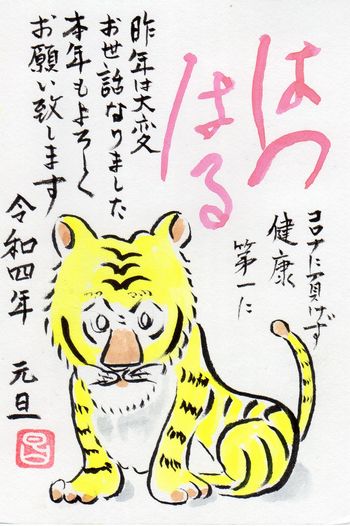 はつ
はる
コロナに負げず
健康
第一に
昨年は大変
お世話なりました
本年もよろしく
お願い致します
令和四年 元旦